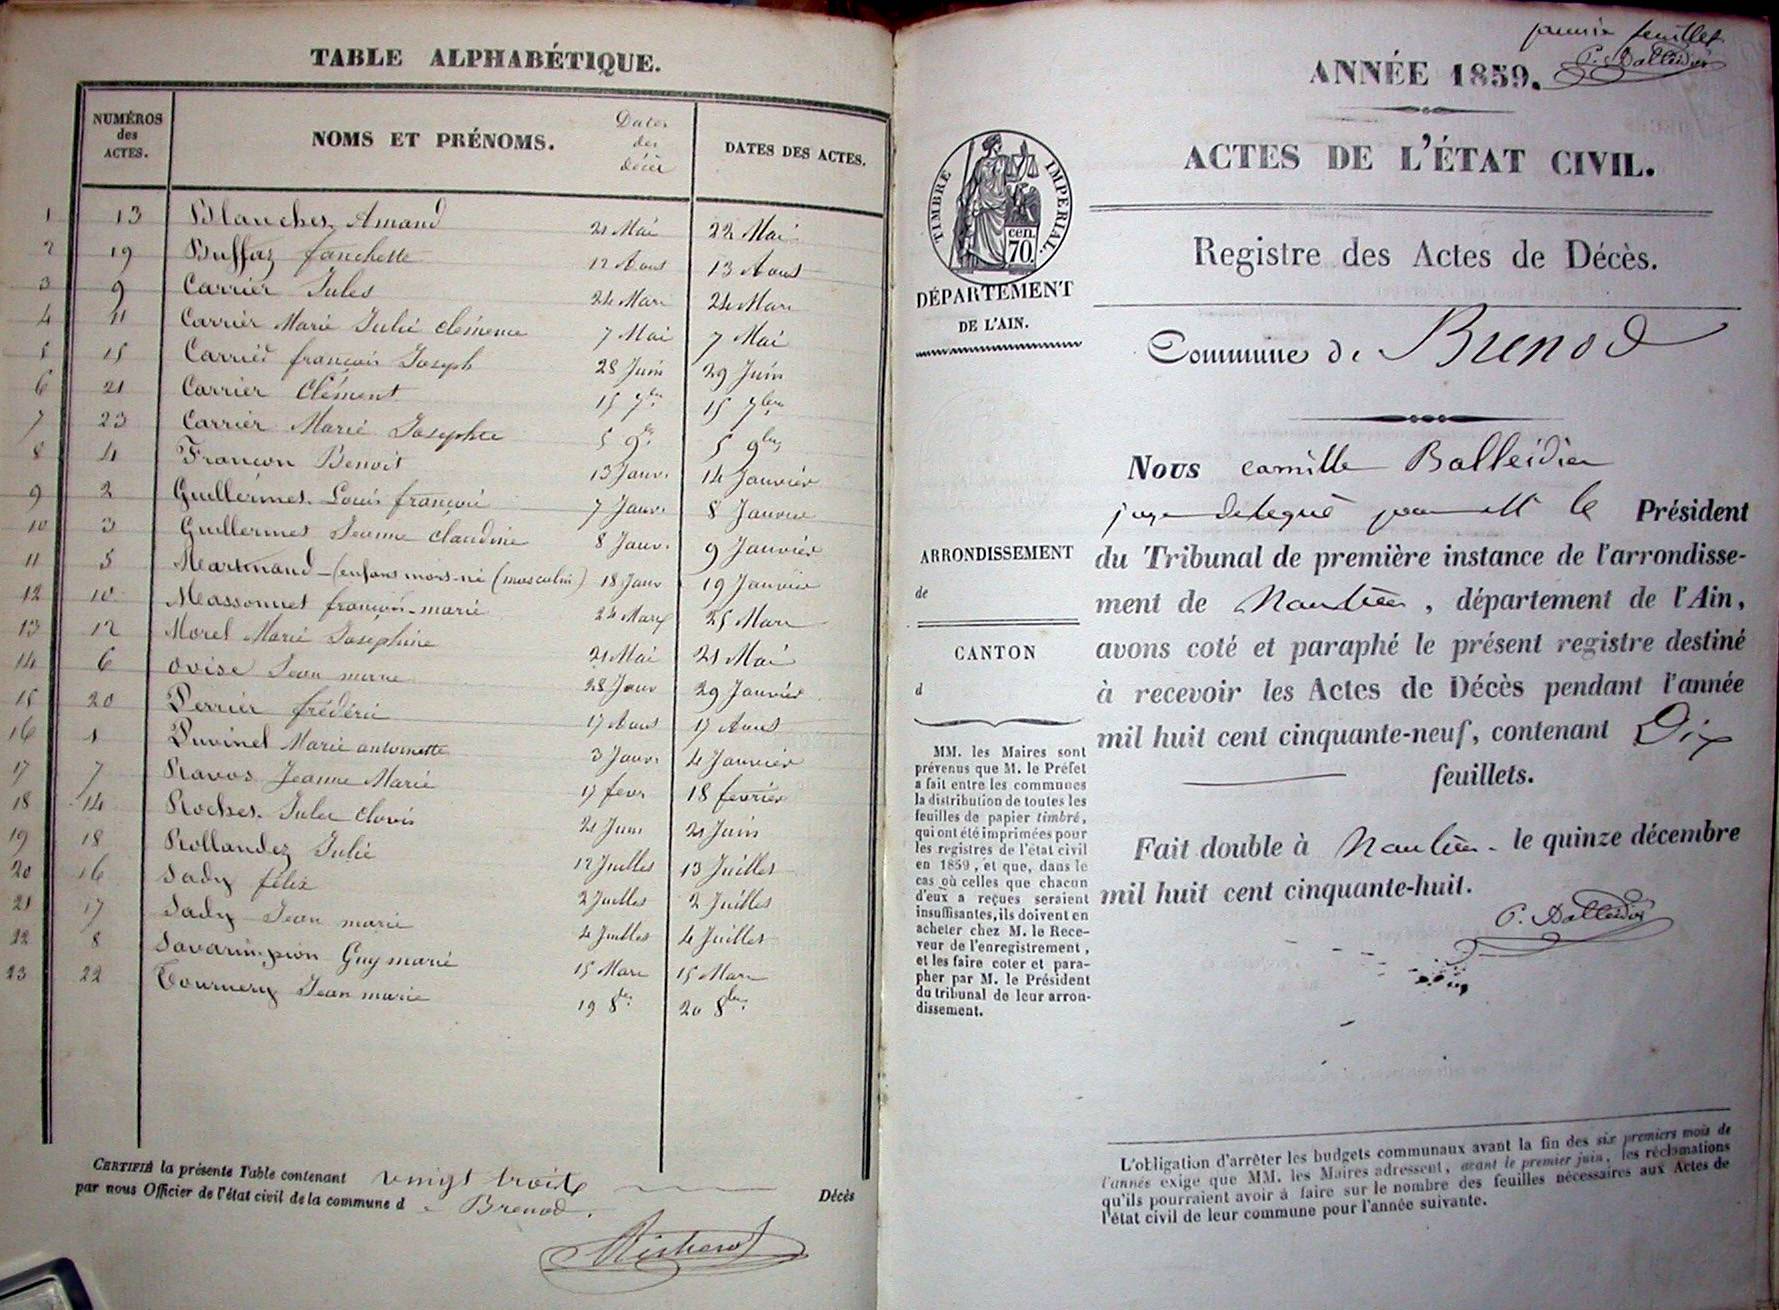 TABLE ALPHABÉTIQUE.
NUMÉROS des ACTES. NOMS ET PRÉNOMS. Dates des décès DATES DES ACTES.
1 13 Blanchez Amand 21 Mai 22 Mai
2 19 Buffaz fanchette 12 Aout 13 Aout
3 9 Carrier Jules 24 Mars 24 Mars
4 11 Carrier Marie Julie clémence 7 Mai 7 Mai
5 15 Carrier françois Joseph 28 Juin 29 Juin
6 21 Carrier Clément 15 7bre 15 7bre
7 23 Carrier Marie Josephte 5 9bre 5 9bre
8 4 Françon Benoit 13 Janv. 14 Janvier
9 2 Guillermet Louis françois 7 Janv. 8 Janvier
10 3 Guillermet Jeanne claudine 8 Janv. 9 Janvier
11 5 Martinand - (enfant mort-né (masculin) 18 Janv 19 Janvier
12 10 Massonnet françois-marie 24 Mars 25 Mars
13 12 Morel Marie Joséphine 21 Mai 21 Mai
14 6 ovise Jean marie 28 Janv 29 Janvier
15 20 Perrier frédéric 17 Aout 17 Aout
16 1 Puvinel Marie antoinette 3 Janv. 4 Janvier
17 7 Ravos Jeanne Marie 17 fevr 18 fevrier
18 14 Rochet Jules clovis 21 Juin 21 Juin
19 18 Rollandez Julie 12 Juillet 13 Juillet
20 16 Sady félix 2 Juillet 2 Juillet
21 17 Sady Jean marie 4 Juillet 4 Juillet
22 8 Savarin-pion Guy marie 15 Mars 15 Mars
23 22 Tournery Jean marie 19 8bre 20 8bre
CERTIFIÉ la présente Table contenant vingt trois Décès
par nous Officier de l'état civil de la commune d e Brenod.
feuillet
C. Balleidier
ANNÉE 1859.
ACTES DE L'ÉTAT CIVIL.
TIMBRE IMPERIAL.
cen.
70.
DÉPARTEMENT
DE L'AIN.
Registre des Actes de Décès.
Commune de Brenod
Nous camille Balleidier
juge délegué par Mr le Président
du Tribunal de première instance de l'arrondisse-
ment de Nantua, département de l'Ain,
avons coté et paraphé le présent registre destiné
à recevoir les Actes de Décès pendant l'année
mil huit cent cinquante-neuf, contenant Dix
feuillets.
Fait double à Nantua - le quinze décembre
mil huit cent cinquante-huit.
C. Balleidier
ARRONDISSEMENT
de
CANTON
d
MM. les Maires sont
prévenus que M. le Préfet
a fait entre les communes
la distribution de toutes les
feuilles de papier timbré,
qui ont été imprimées pour
les registres de l'état civil
en 1859, et que, dans le
cas où celles que chacun
d'eux a reçues seraient
insuffisantes, ils doivent en
acheter chez M. le Rece-
veur de l'enregistrement,
et les faire coter et para-
pher par M. le Président
du tribunal de leur arron-
dissement.
L'obligation d'arrêter les budgets communaux avant la fin des six premiers mois de
l'année exige que MM. les Maires adressent, avant le premier juin, les réclamations
qu'ils pourraient avoir à faire sur le nombre des feuilles nécessaires aux Actes de
l'état civil de leur commune pour l'année suivante.